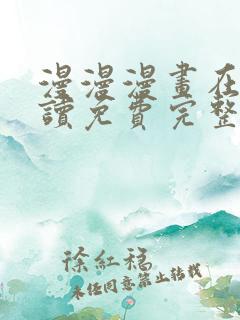 漫漫漫畫在
讀免費完整
徐紅稿
未经同意禁止转载